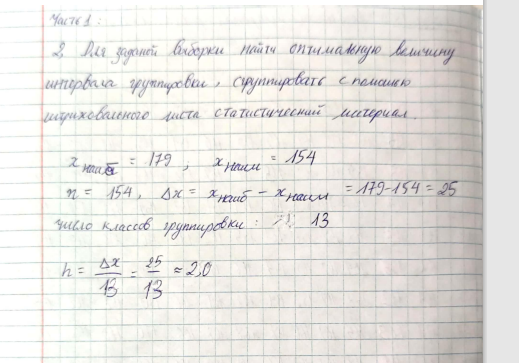 Часть 1:
2. Для заданой выборки найти оптимальную величину
интервала группировки, сгруппировать с помошю
штриховального листа статистический материал.
x наиб = 179, x наим = 154
n = 154, Δx = x наиб − x наим = 179-154 = 25
число классов группировки: 13
h = Δx/13 = 25/13 ≈ 2,0